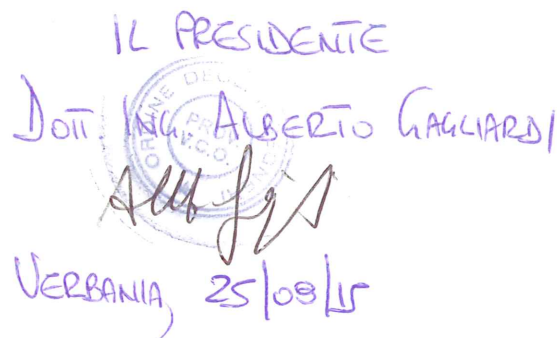 IL PRESIDENTE
DOTT. ING. ALBERTO GAGLIARDI
ORDINE DEGLI
PROV.
V.C.O.
VERBANIA, 25/09/15